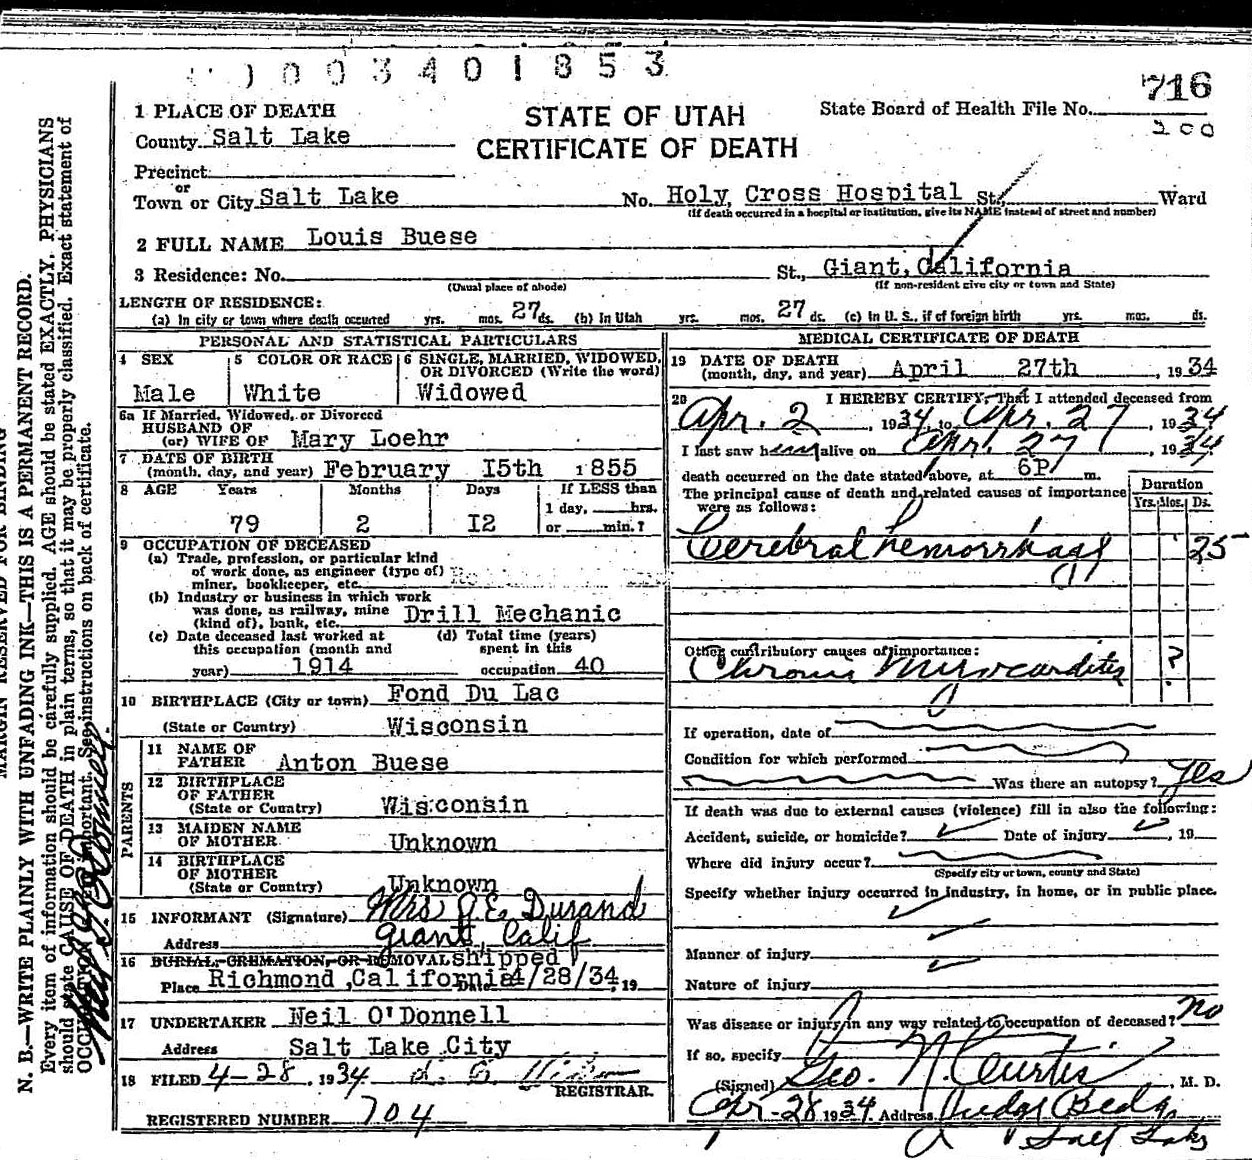 0 0 3 4 0 1 8 5 3
716
200
STATE OF UTAH
CERTIFICATE OF DEATH
State Board of Health File No.
1 PLACE OF DEATH
County Salt Lake
Precinct
or
Town or City Salt Lake No. Holy Cross Hospital St. Ward
(If death occurred in a hospital or institution, give its NAME instead of street and number)
2 FULL NAME Louis Buese
3 Residence: No. St., Giant, California
(Usual place of abode) (If non-resident give city or town and State)
LENGTH OF RESIDENCE:
(a) In city or town where death occurred yrs. mos. 27 ds. (b) In Utah yrs. mos. 27 ds. (c) In U. S., if of foreign birth yrs. mos. ds.
PERSONAL AND STATISTICAL PARTICULARS
4 SEX
Male
5 COLOR OR RACE
White
6 SINGLE, MARRIED, WIDOWED, OR DIVORCED (Write the word)
Widowed
6a If Married, Widowed, or Divorced
HUSBAND OF
(or) WIFE OF Mary Loehr
7 DATE OF BIRTH
(month, day, and year) February I5th 1855
8 AGE Years Months Days If LESS than
1 day, hrs.
79 2 I2 or min.?
9 OCCUPATION OF DECEASED
(a) Trade, profession, or particular kind
of work done, as engineer (type of)
miner, bookkeeper, etc.
(b) Industry or business in which work
was done, as railway, mine
(kind of), bank, etc. Drill Mechanic
(c) Date deceased last worked at (d) Total time (years)
this occupation (month and spent in this
year) 1914 occupation 40
10 BIRTHPLACE (City or town) Fond Du Lac
(State or Country) Wisconsin
PARENTS
11 NAME OF
FATHER Anton Buese
12 BIRTHPLACE
OF FATHER
(State or Country) Wisconsin
13 MAIDEN NAME
OF MOTHER Unknown
14 BIRTHPLACE
OF MOTHER
(State or Country) Unknown
15 INFORMANT (Signature) Mrs J.E. Durand
Address Giant, Calif
16 BURIAL, CREMATION, OR REMOVAL shipped
Place Richmond, California Date 4/28/34, 19
17 UNDERTAKER Neil O'Donnell
Address Salt Lake City
18 FILED 4-28, 1934
REGISTRAR.
REGISTERED NUMBER 704
MEDICAL CERTIFICATE OF DEATH
19 DATE OF DEATH
(month, day, and year) April 27th, 1934
20 I HEREBY CERTIFY, That I attended deceased from
Apr. 2, 1934, to Apr. 27, 1934
I last saw him alive on Apr. 27, 1934
death occurred on the date stated above, at 6P m.
The principal cause of death and related causes of importance
were as follows:
Duration
Yrs. Mos. Ds.
Cerebral hemorrhage 25
Other contributory causes of importance:
Chronic Myocarditis ?
If operation, date of
Condition for which performed
Was there an autopsy? Yes
If death was due to external causes (violence) fill in also the following:
Accident, suicide, or homicide? Date of injury, 19
Where did injury occur?
(Specify city or town, county and State)
Specify whether injury occurred in industry, in home, or in public place.
Manner of injury
Nature of injury
Was disease or injury in any way related to occupation of deceased? No
If so, specify
(Signed) Geo. N. Curtis, M. D.
Apr-28 1934 Address Judge Bldg,
Salt Lake
MARGIN RESERVED FOR BINDING
N. B.—WRITE PLAINLY WITH UNFADING INK—THIS IS A PERMANENT RECORD.
Every item of information should be carefully supplied. AGE should be stated EXACTLY. PHYSICIANS
should state CAUSE OF DEATH in plain terms, so that it may be properly classified. Exact statement of
OCCUPATION is important. See instructions on back of certificate.